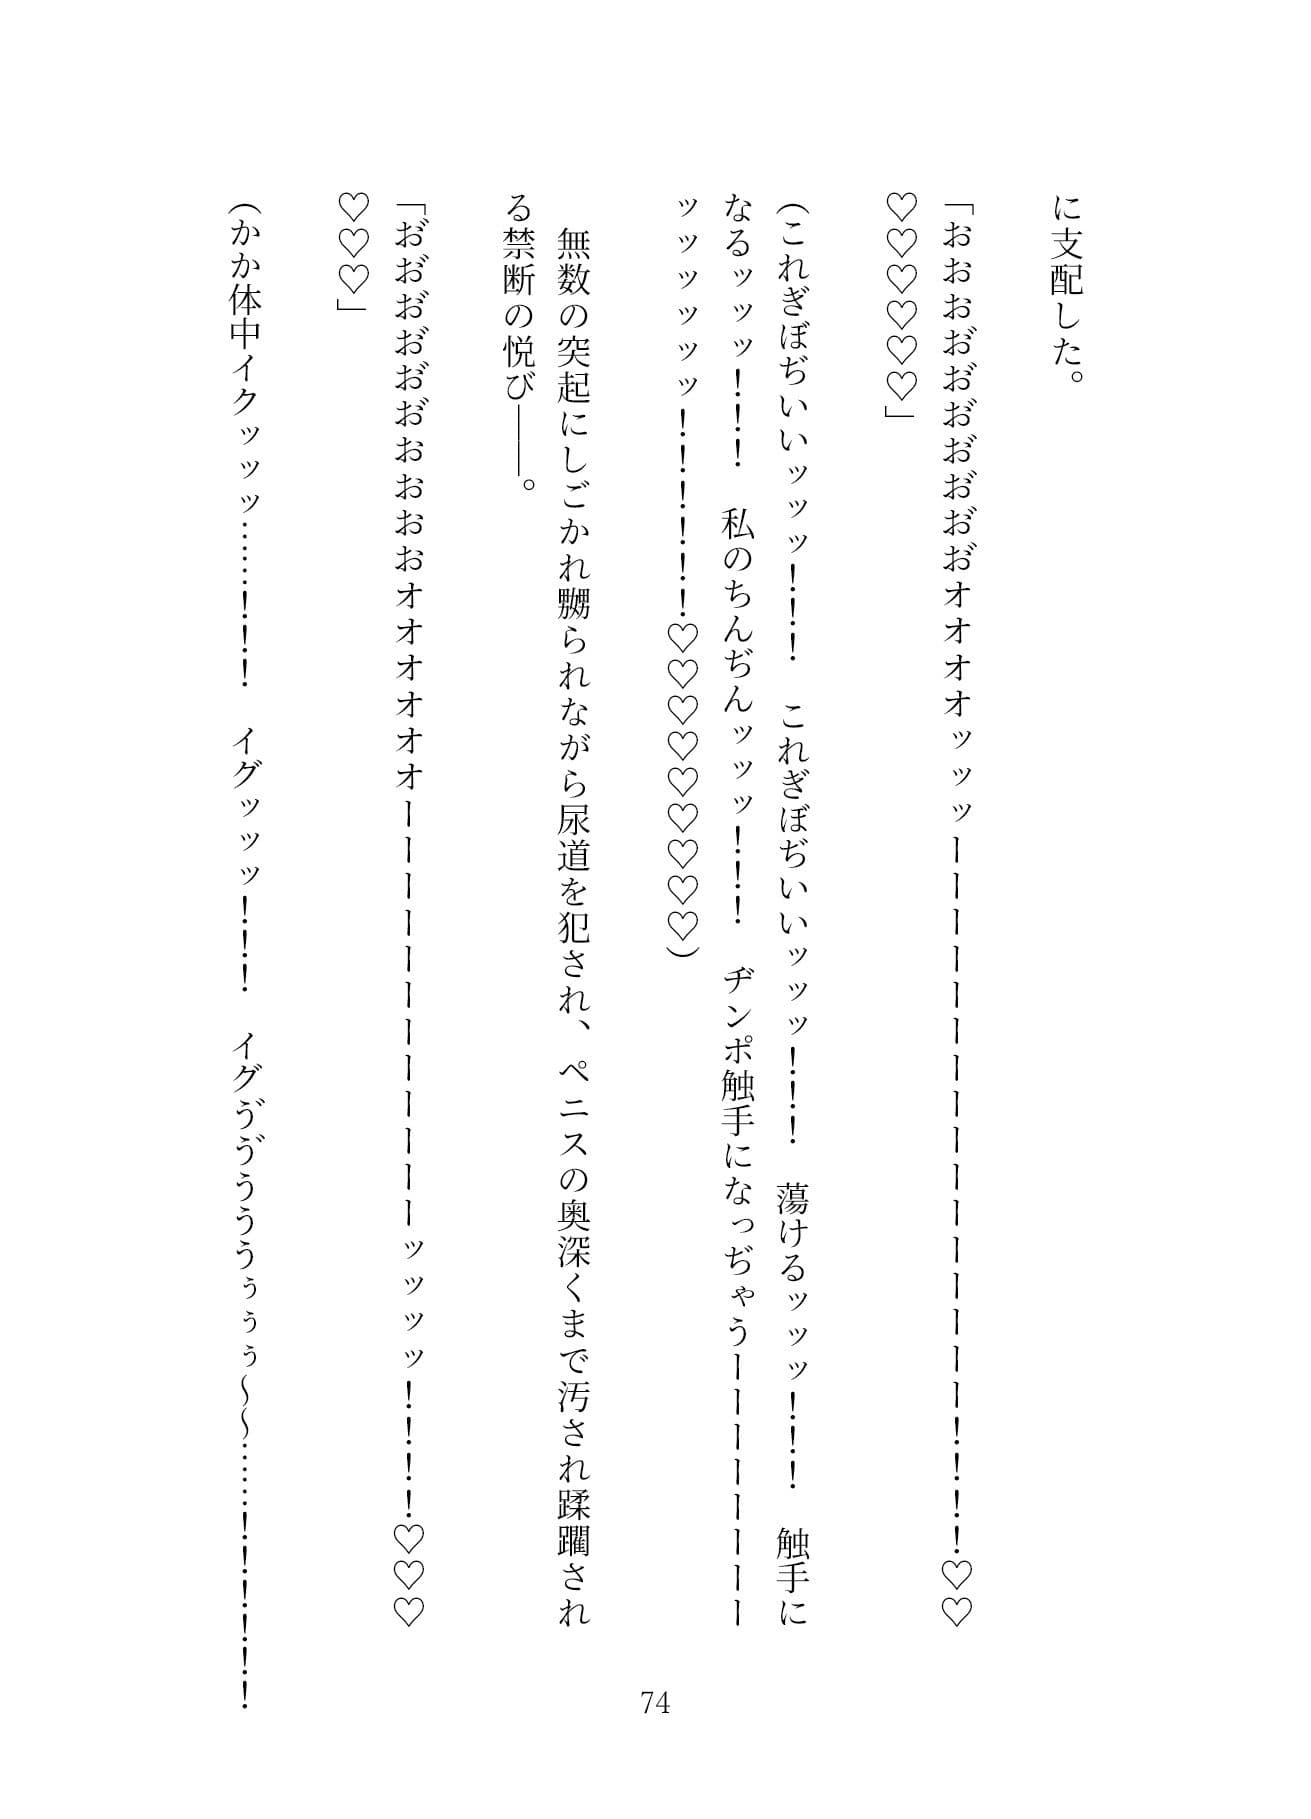 に支配した。
「おおおお゙お゙お゙お゙お゙お゙お゙オオオオッッッーーーーーーーーーーーーーーーー！！！！♡♡
♡♡♡♡♡♡」
（これぎぼぢいいッッッ！！！　これぎぼぢいいッッッ！！！　蕩けるッッッ！！！　触手に
なるッッッ！！！　私のちんぢんッッッ！！！　ヂンポ触手になっぢゃうーーーーーーーー
ッッッッッッ！！！！！！♡♡♡♡♡♡♡♡♡）
　無数の突起にしごかれ嬲られながら尿道を犯され、ペニスの奥深くまで汚され蹂躙され
る禁断の悦び――。
「お゙お゙お゙お゙お゙お゙おおおおオオオオオオーーーーーーーーーーーーッッッッ！！！！♡♡♡
♡♡♡」
（かか体中イクッッッ……！！！　イグッッッ！！！　イグゔゔうううぅぅぅ～～……！！！！！！
74